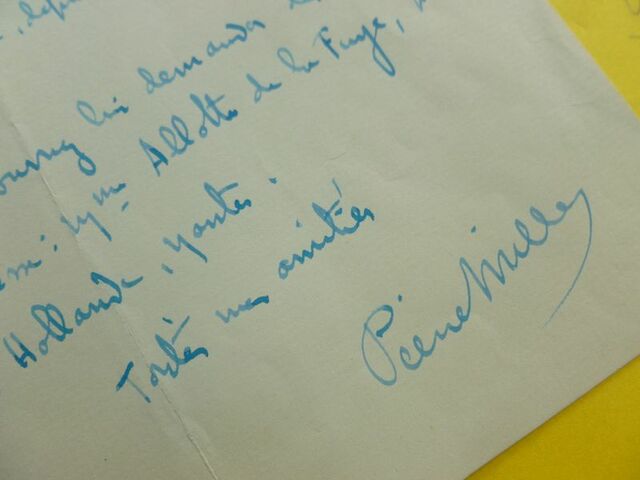 pourrez lui demander
: Mme Allotte de la Fuye,
Hollande, Nantes.
Toutes mes amitiés
Pierre Mille